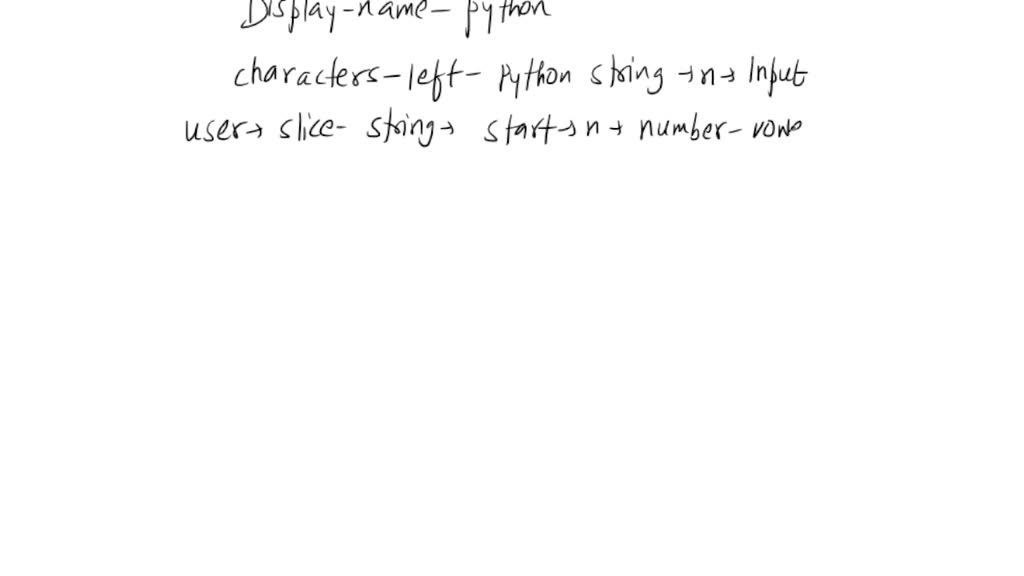 Display-name- python
characters-left- Python string → n → Input
user → slice- string → start → n → number- rows